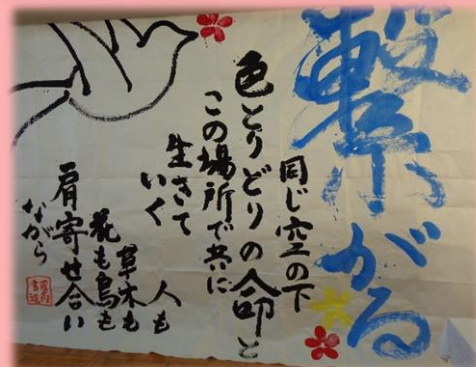 繋がる
同じ空の下
色とりどりの命と
この場所で共に
生きて
いく
人も
草木も
花も鳥も
肩寄せ合い
ながら